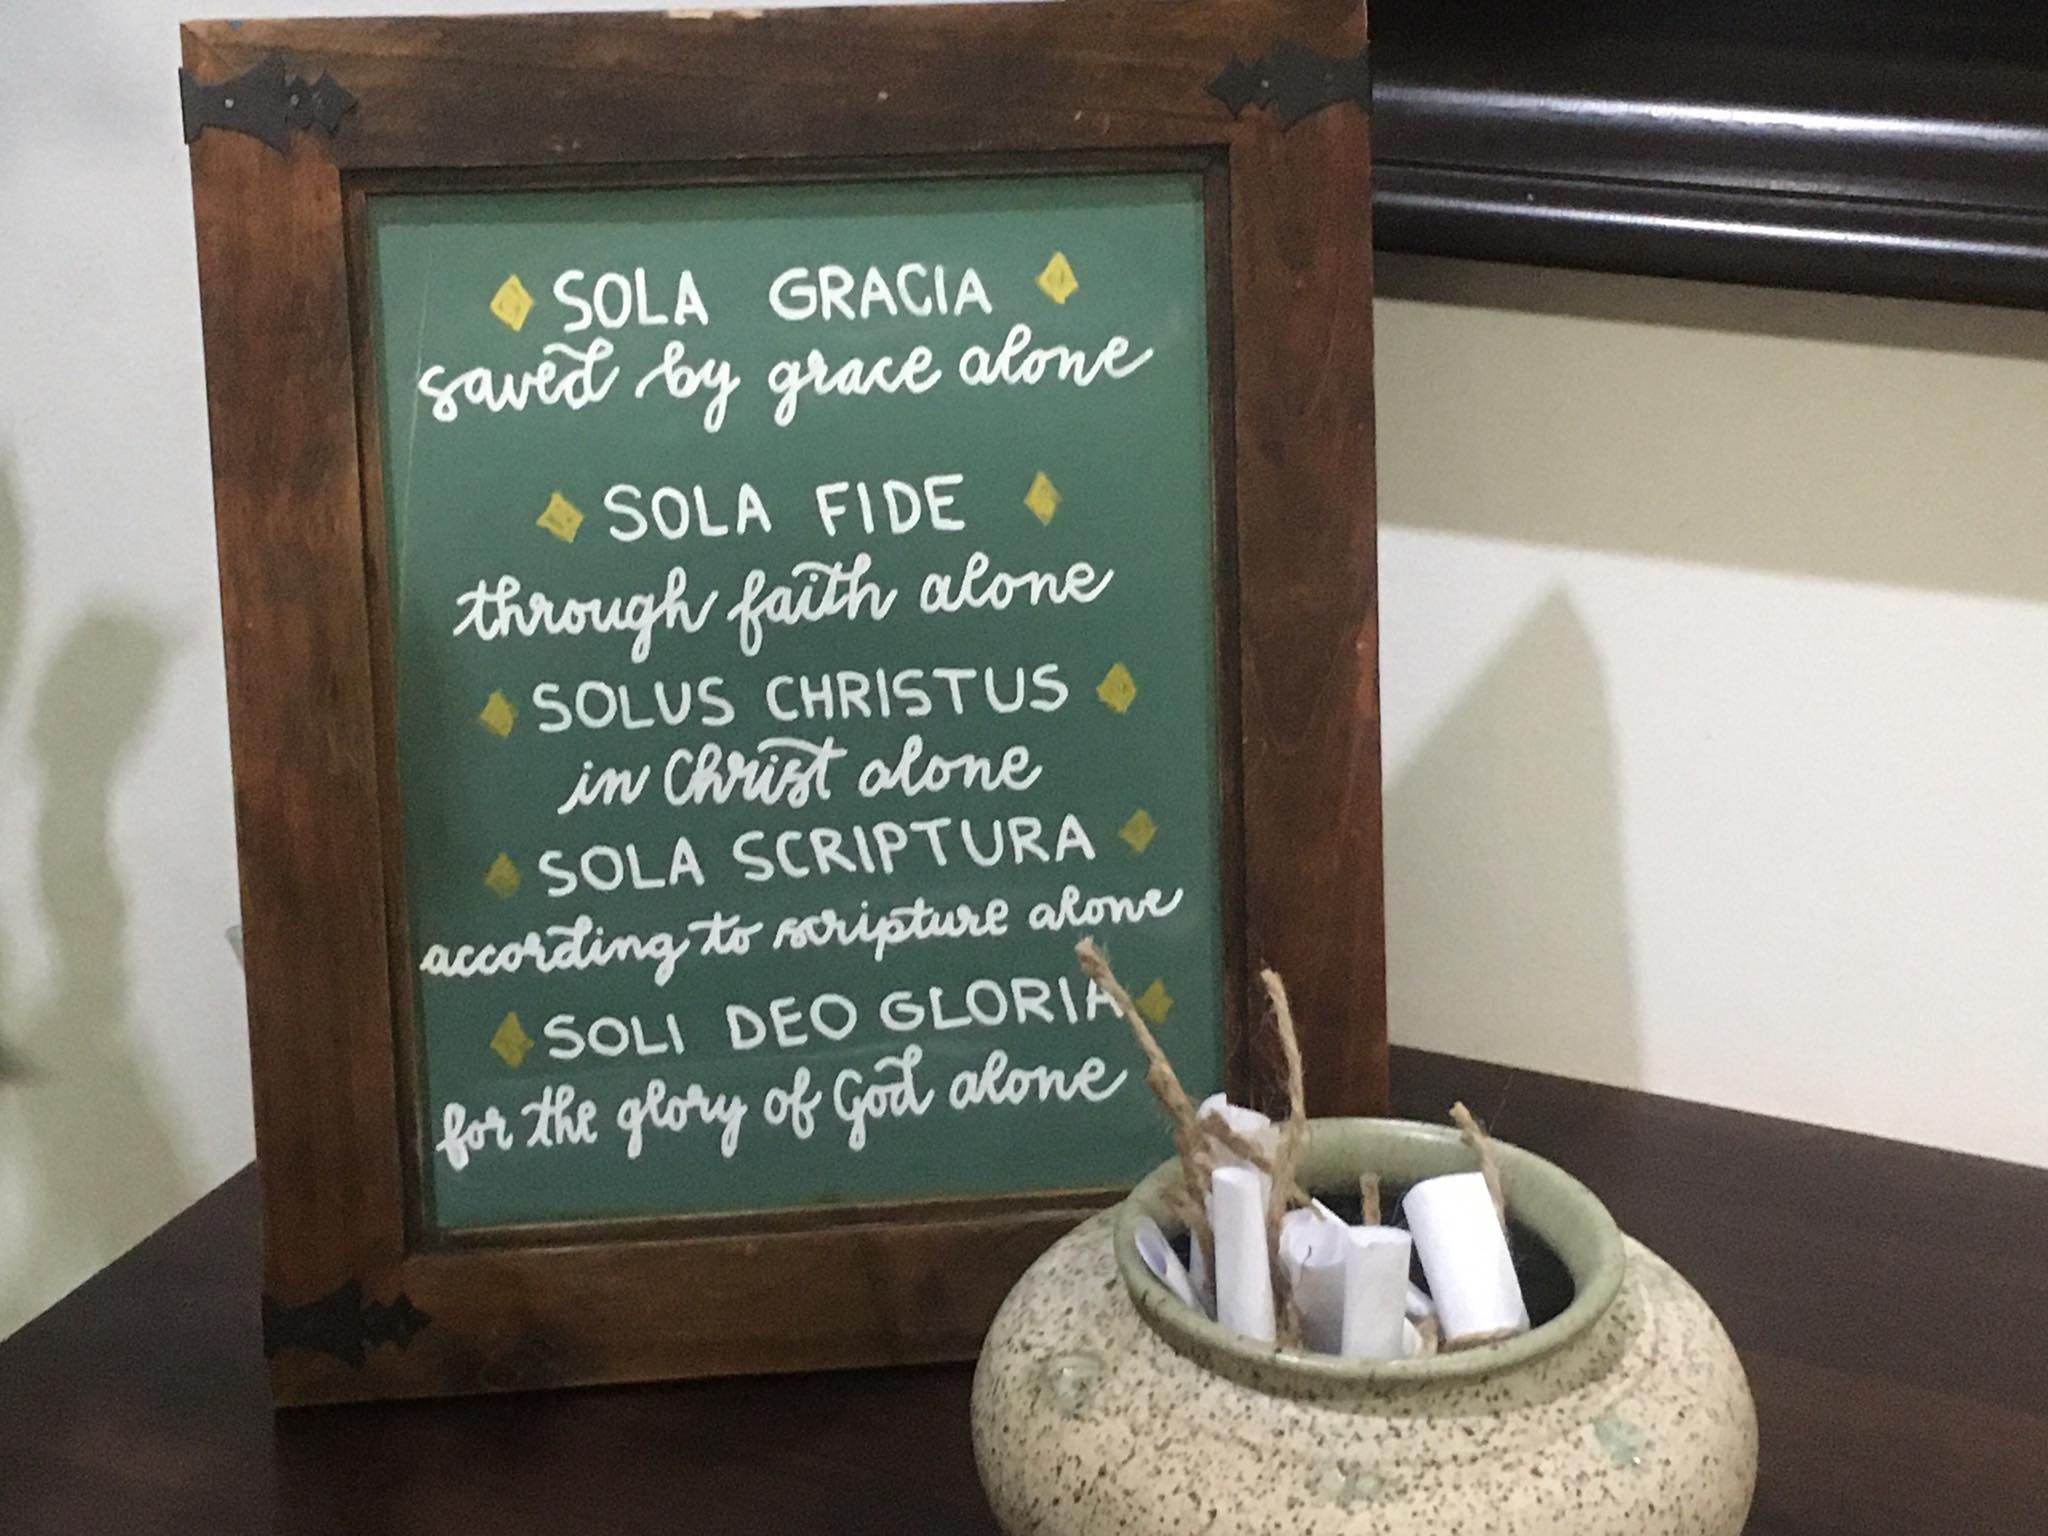 SOLA GRACIA
saved by grace alone
SOLA FIDE
through faith alone
SOLUS CHRISTUS
in Christ alone
SOLA SCRIPTURA
according to scripture alone
SOLI DEO GLORIA
for the glory of God alone